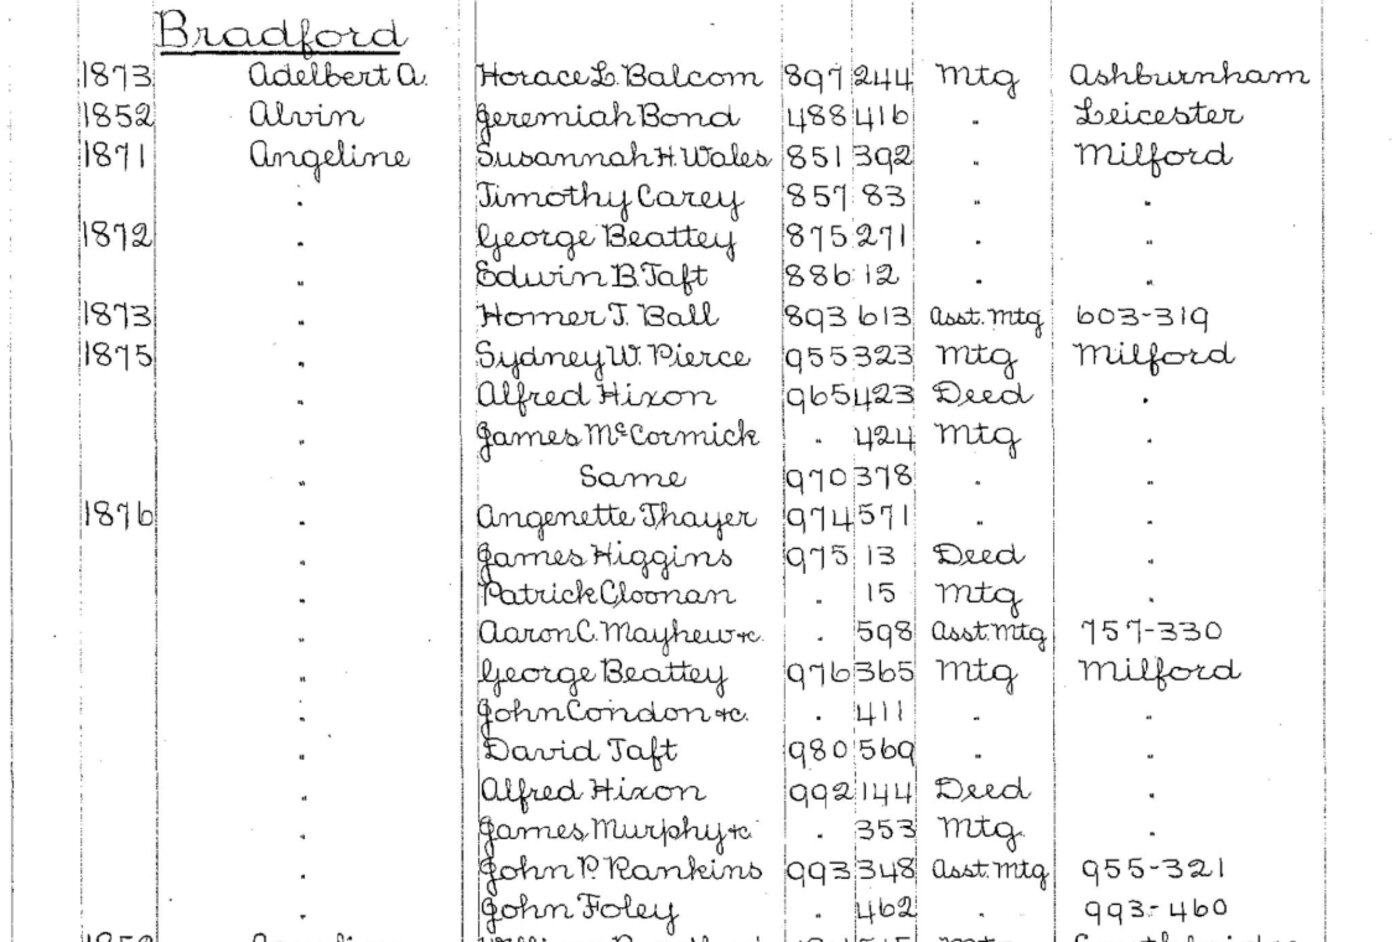 Bradford
1873 Adelbert A. Horace L. Balcom 897 244 Mtg Ashburnham
1852 Alvin Jeremiah Bond 488 416 " Leicester
1871 Angeline Susannah H. Wales 851 392 " Milford
" Timothy Carey 857 83 " "
1872 " George Beattey 875 271 " "
" Edwin B. Taft 886 12 " "
1873 " Homer T. Ball 893 613 Asst. Mtg 603-319
1875 " Sydney W. Pierce 955 323 Mtg Milford
" Alfred Hixon 965 423 Deed "
" James McCormick " 424 Mtg "
" Same 970 378 " "
1876 " Angenette Thayer 974 571 " "
" James Higgins 975 13 Deed "
" Patrick Cloonan " 15 Mtg "
" Aaron C. Mayhew &c. " 598 Asst. Mtg 757-330
" George Beattey 976 365 Mtg Milford
" John Condon &c. " 411 " "
" David Taft 980 569 " "
" Alfred Hixon 992 144 Deed "
" James Murphy &c " 353 Mtg. "
" John P. Rankins 993 348 Asst. Mtg 955-321
" John Foley " 462 " 993-460